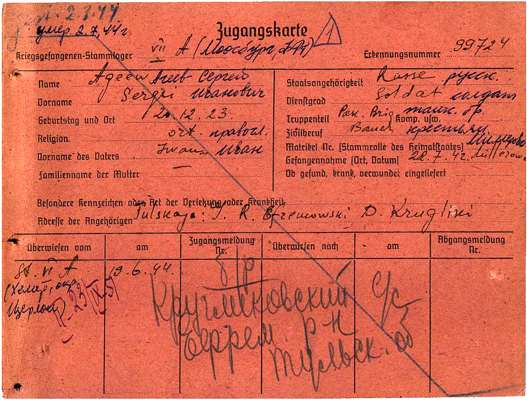 2.7.44
умер 2.7.44г.
Zugangskarte 1
Kriegsgefangenen-Stammlager VII A (Моосбург,
Erkennungsnummer 99724
Name Ageew Агеев Сергей
Vorname Sergei Иванович
Geburtstag und Ort 20.12.23.
Religion ort. правосл.
Vorname des Vaters Iwan Иван
Familienname der Mutter
Staatsangehörigkeit Russe русск.
Dienstgrad Soldat солдат
Truppenteil Pan. Brig танк. бр. Komp. usw.
Zivilberuf Bauer крестьян.
Matrikel Nr. (Stammrolle des Heimatstaates)
Gefangennahme (Ort, Datum) 28.7.42. Millerowo
Ob gesund, krank, verwundet eingeliefert
Besondere Kennzeichen oder Art der Verletzung oder Krankheit
Adresse der Angehörigen Tulskaja: R. D. Krugliki
Überwiesen vom am Zugangsmeldung Nr. Überwiesen nach am Abgangsmeldung Nr.
VI A 19.6.44.
б/р
Кругликовский с/с
р-н
Тульск. об